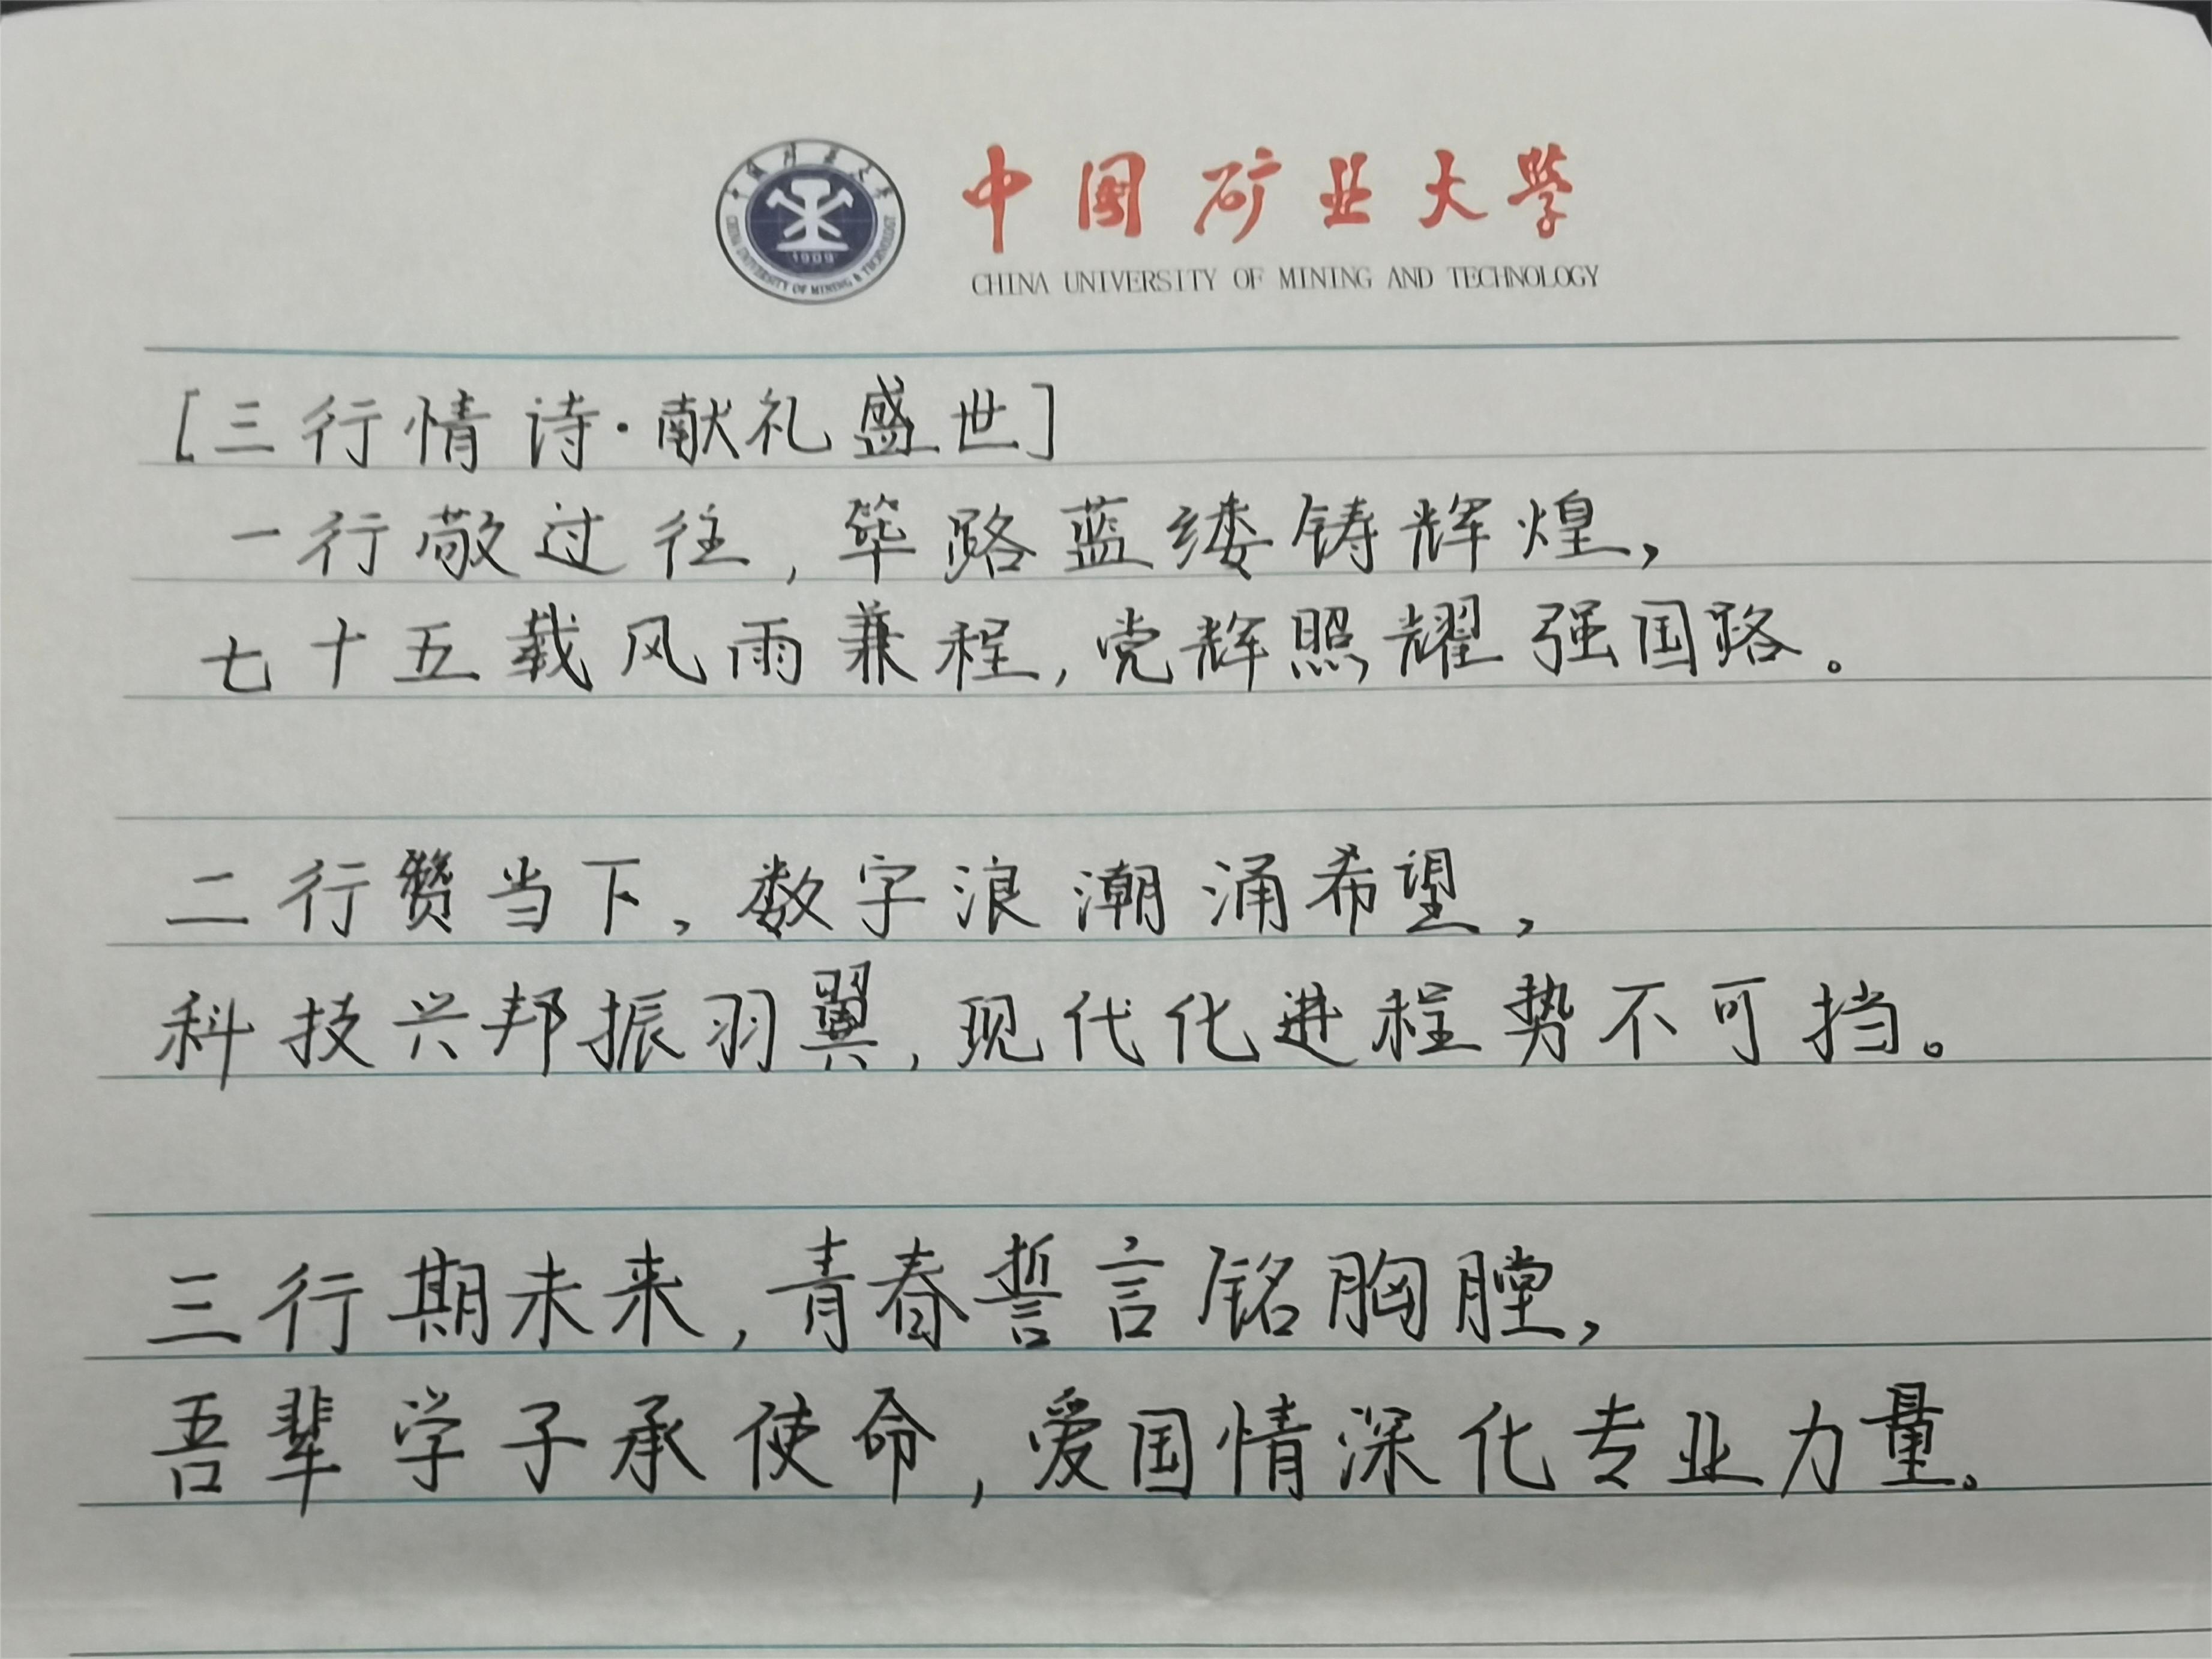 中国矿业大学
CHINA UNIVERSITY OF MINING & TECHNOLOGY
1909
中国矿业大学
CHINA UNIVERSITY OF MINING AND TECHNOLOGY
[三行情诗·献礼盛世]
一行敬过往,筚路蓝缕铸辉煌,
七十五载风雨兼程,党辉照耀强国路。
二行赞当下,数字浪潮涌希望,
科技兴邦振羽翼,现代化进程势不可挡。
三行期未来,青春誓言铭胸膛,
吾辈学子承使命,爱国情深化专业力量。